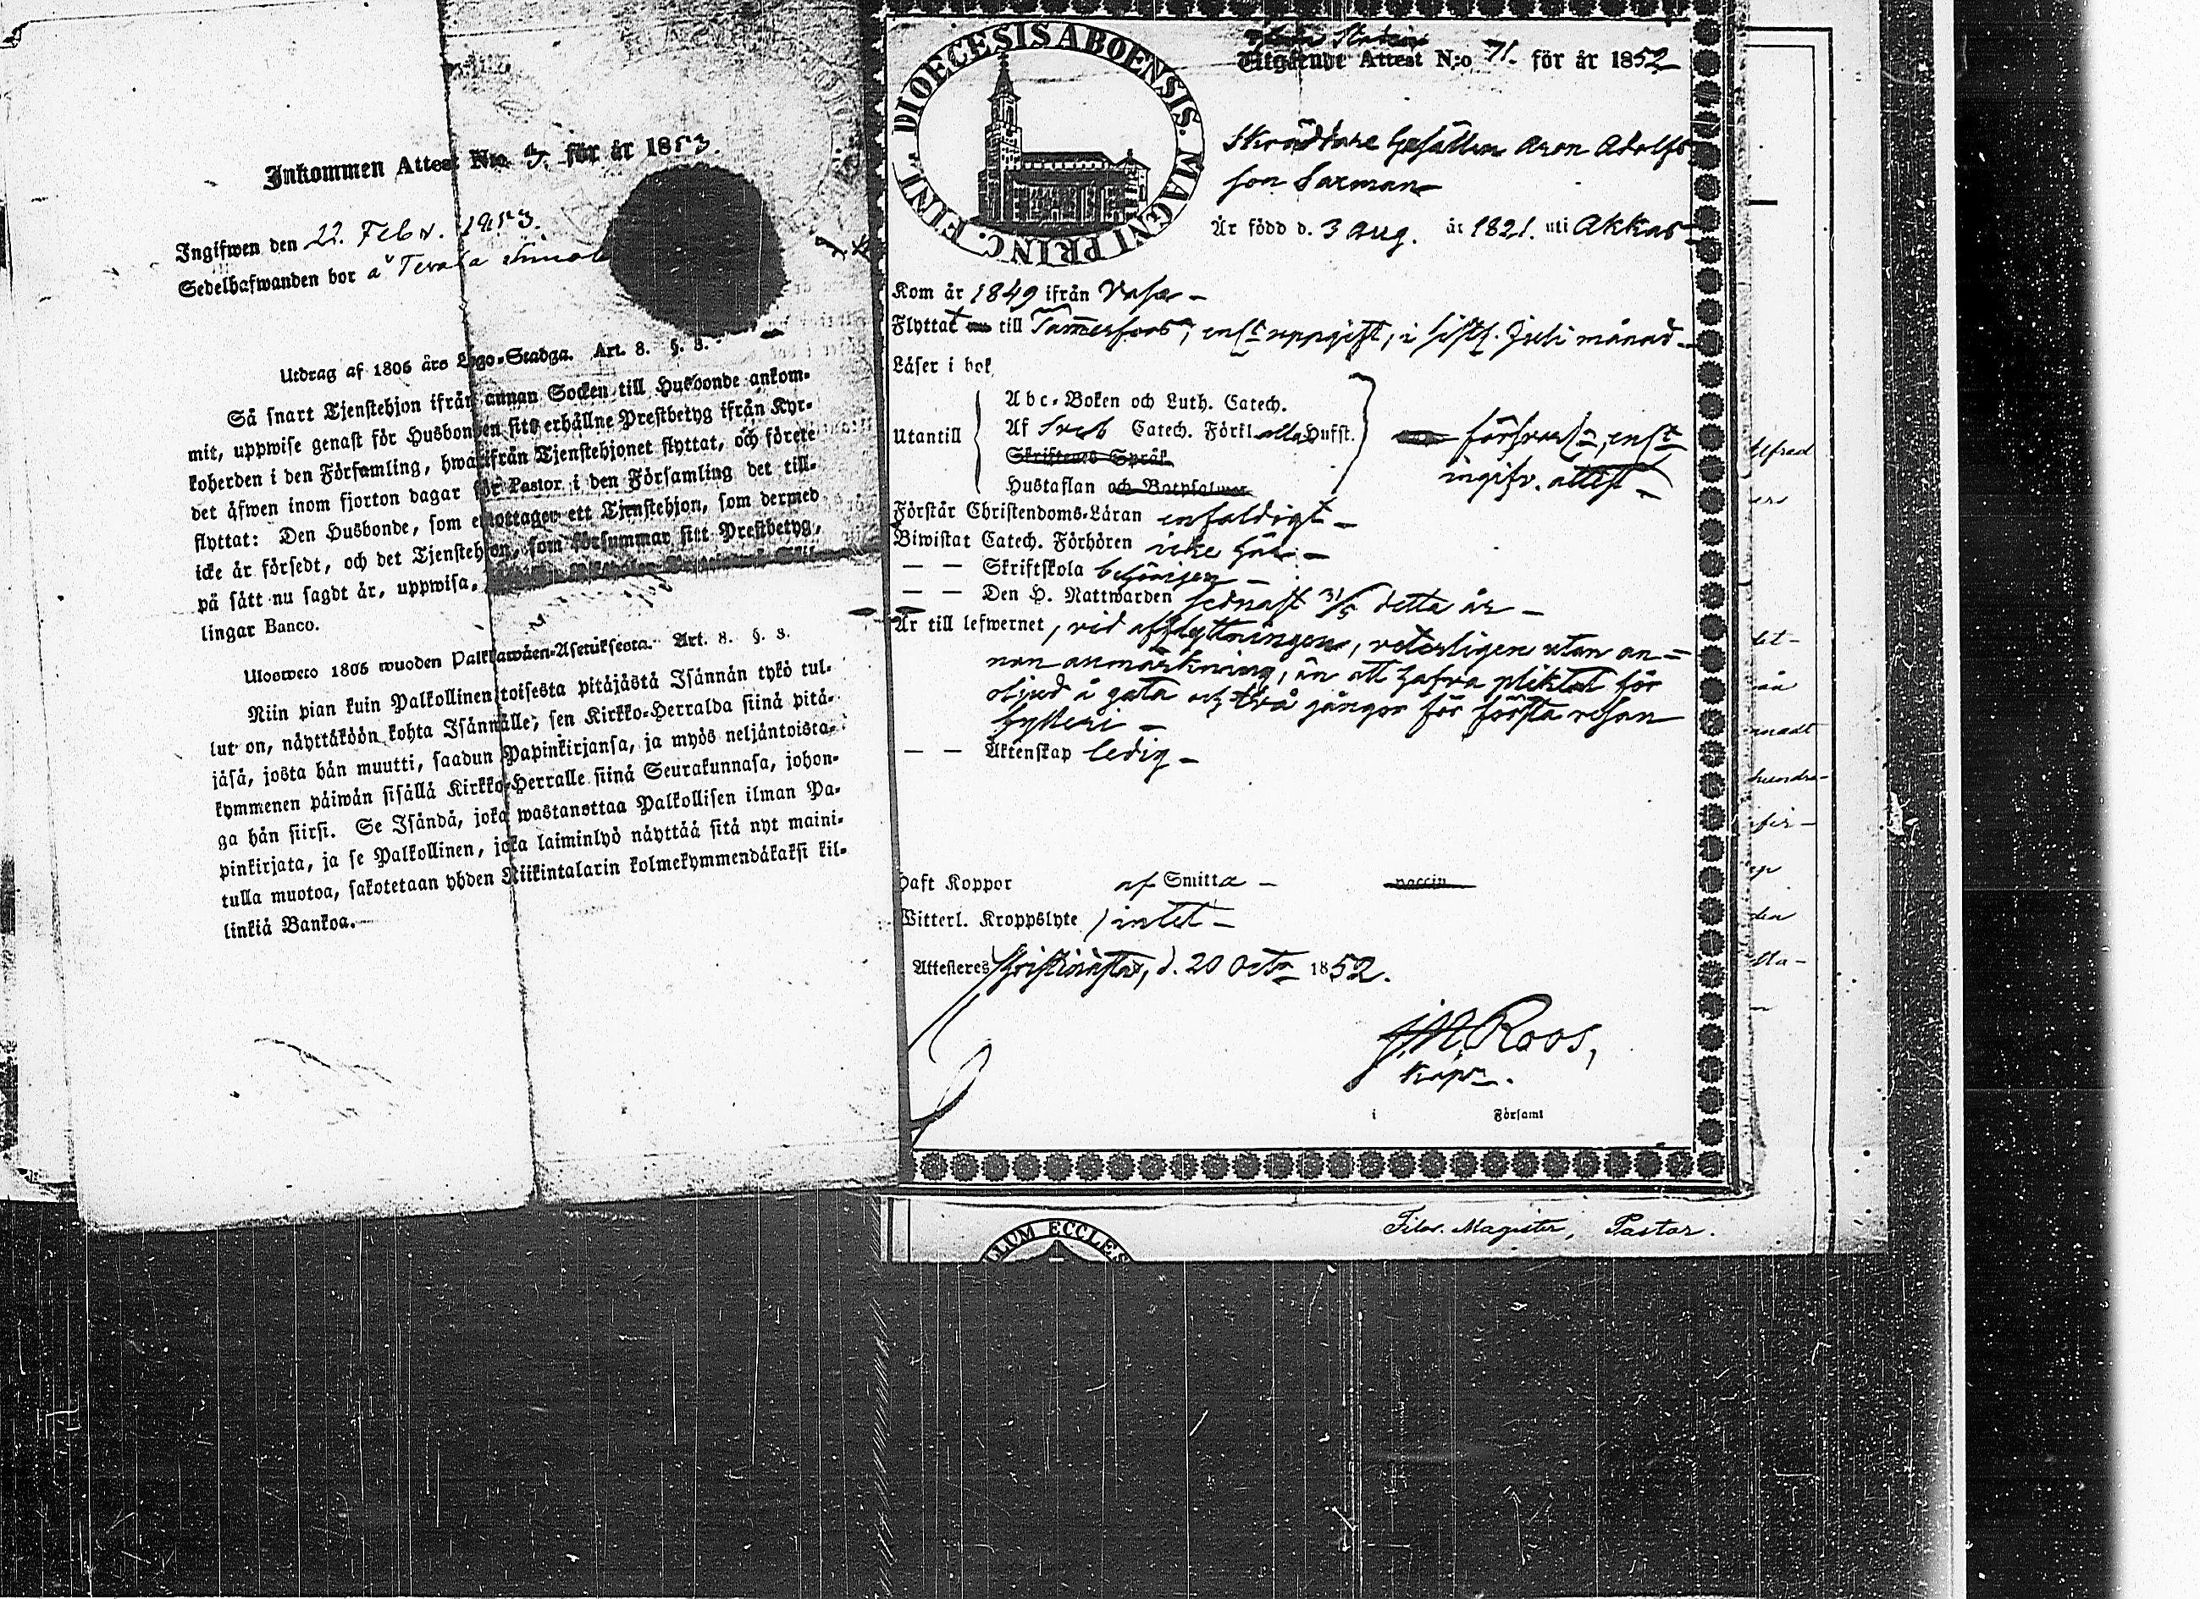 Inkommen Attest N:o 5. för år 1853.
Ingifwen den 22. Febr. 1853.
Sedelhafwanden bor å
Utdrag af 1805 års Lego-Stadga. Art. 8. §. 3.
Så snart Tjenstehjon ifrån annan Socken till Husbonde ankom-
mit, uppwise genast för Husbonden sitt erhållne Prestbetyg ifrån Kyr-
koherden i den Församling, hwarifrån Tjenstehjonet flyttat, och förete
det äfwen inom fjorton dagar för Pastor i den Församling det till-
flyttat: Den Husbonde, som emottager ett Tjenstehjon, som dermed
icke är försedt, och det Tjenstehjon, som försummar sitt Prestbetyg,
på sätt nu sagdt är, uppwisa,
lingar Banco.
Uloswető 1805 wuoden Palkkawäen-Asetuksesta. Art. 8. §. 3.
Niin pian kuin Palkollinen toisesta pitäjästä Isännän tykö tul-
lut on, näyttäköön kohta Isännälle, sen Kirkko-Herralda siinä pitä-
jäsä, josta hän muutti, saadun Papinkirjansa, ja myös neljäntoista-
kymmenen päiwän sisällä Kirkko-Herralle siinä Seurakunnasa, johon-
ga hän siirsi. Se Isändä, joka wastanottaa Palkollisen ilman Pa-
pinkirjata, ja se Palkollinen, joka laiminlyö näyttää sitä nyt maini-
tulla muotoa, sakotetaan yhden Riikintalarin kolmekymmendäkaksi kil-
linkiä Bankoa.
DIOECESIS ABOENSIS. MAGNI PRINC. FINL.
Utgående Attest N:o 71. för år 1852
Skräddare Gesällen Aron Adolfs
son Sarman
Är född d. 3 Aug. år 1821. uti Akkas
Kom år 1849 ifrån Vasa
Flyttat till Tammerfors, enl. uppgift, i sistl. Juli månad
Läser i bok
Abc-Boken och Luth. Catech.
Utantill
Af Sveb Catech. Förkl alla Hufst.
Skriftenes Språk
Hustaflan och Botpsalmer
försvarl., enl.
ingifv. attest
Förstår Christendoms-Läran enfaldigt
Biwistat Catech. Förhören icke här
— — Skriftskola behörigen
— — Den H. Nattwarden sednast 31/5 detta år
Är till lefwernet, vid afflyttningen, veterligen utan an=
nan anmärkning, än att hafva pliktat för
oljud å gata och två gångor för första resan
fylleri
— — Äktenskap ledig
Haft Koppor af Smitta vaccin
Witterl. Kroppslyte, intet
Attesteres Christinæstad, d. 20 Octr 1852.
J. M. Roos,
Kapn.
i Församl
Alfred
den
Filos. Magister, Pastor.
ILLUM ECCLES